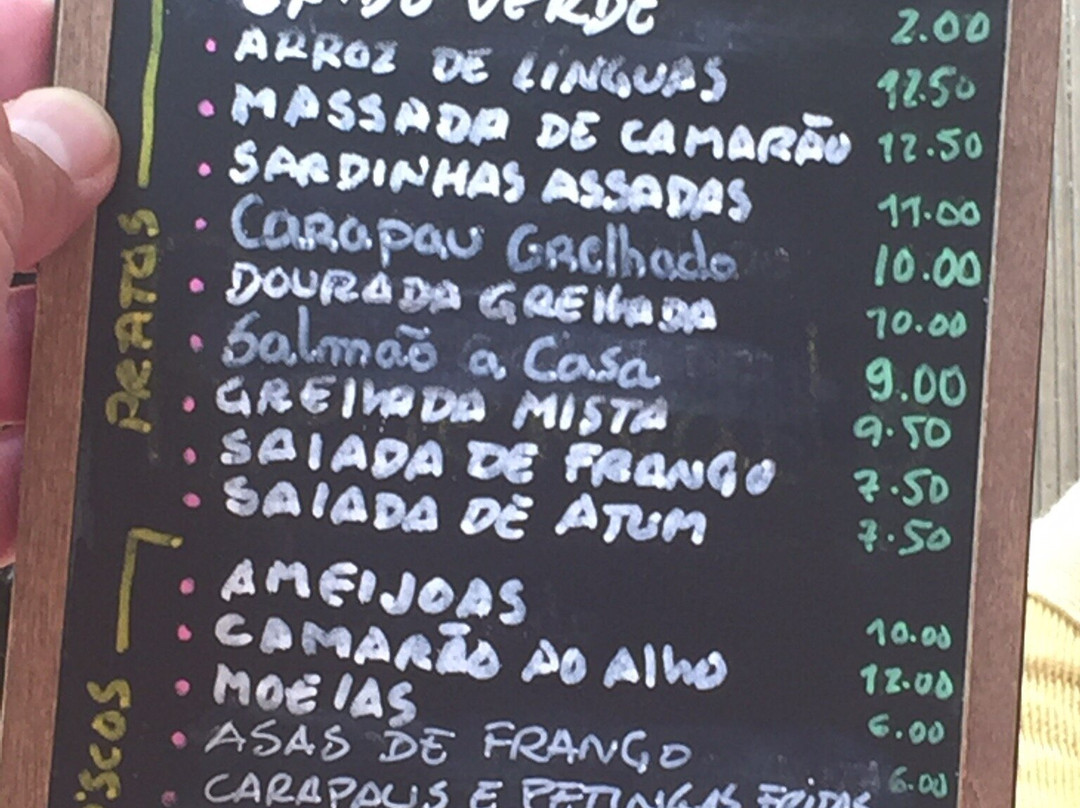 CALDO VERDE 2.00
PRATOS
• ARROZ DE LINGUAS 12.50
• MASSADA DE CAMARÃO 12.50
• SARDINHAS ASSADAS 11.00
• Carapau Grelhado 10.00
• DOURADA GRElhADA 10.00
• Salmaõ a Casa 9.00
• GRElhADA MISTA 9.50
• SAlADA DE FRANGO 7.50
• SAlADA DE ATUM 7.50
• AMEIJOAS 10.00
• CAMARÃO AO Alho 12.00
• MOElAS 6.00
• ASAS DE FRANGO 6.00
CARAPAUS E PETINGAS FRITAS